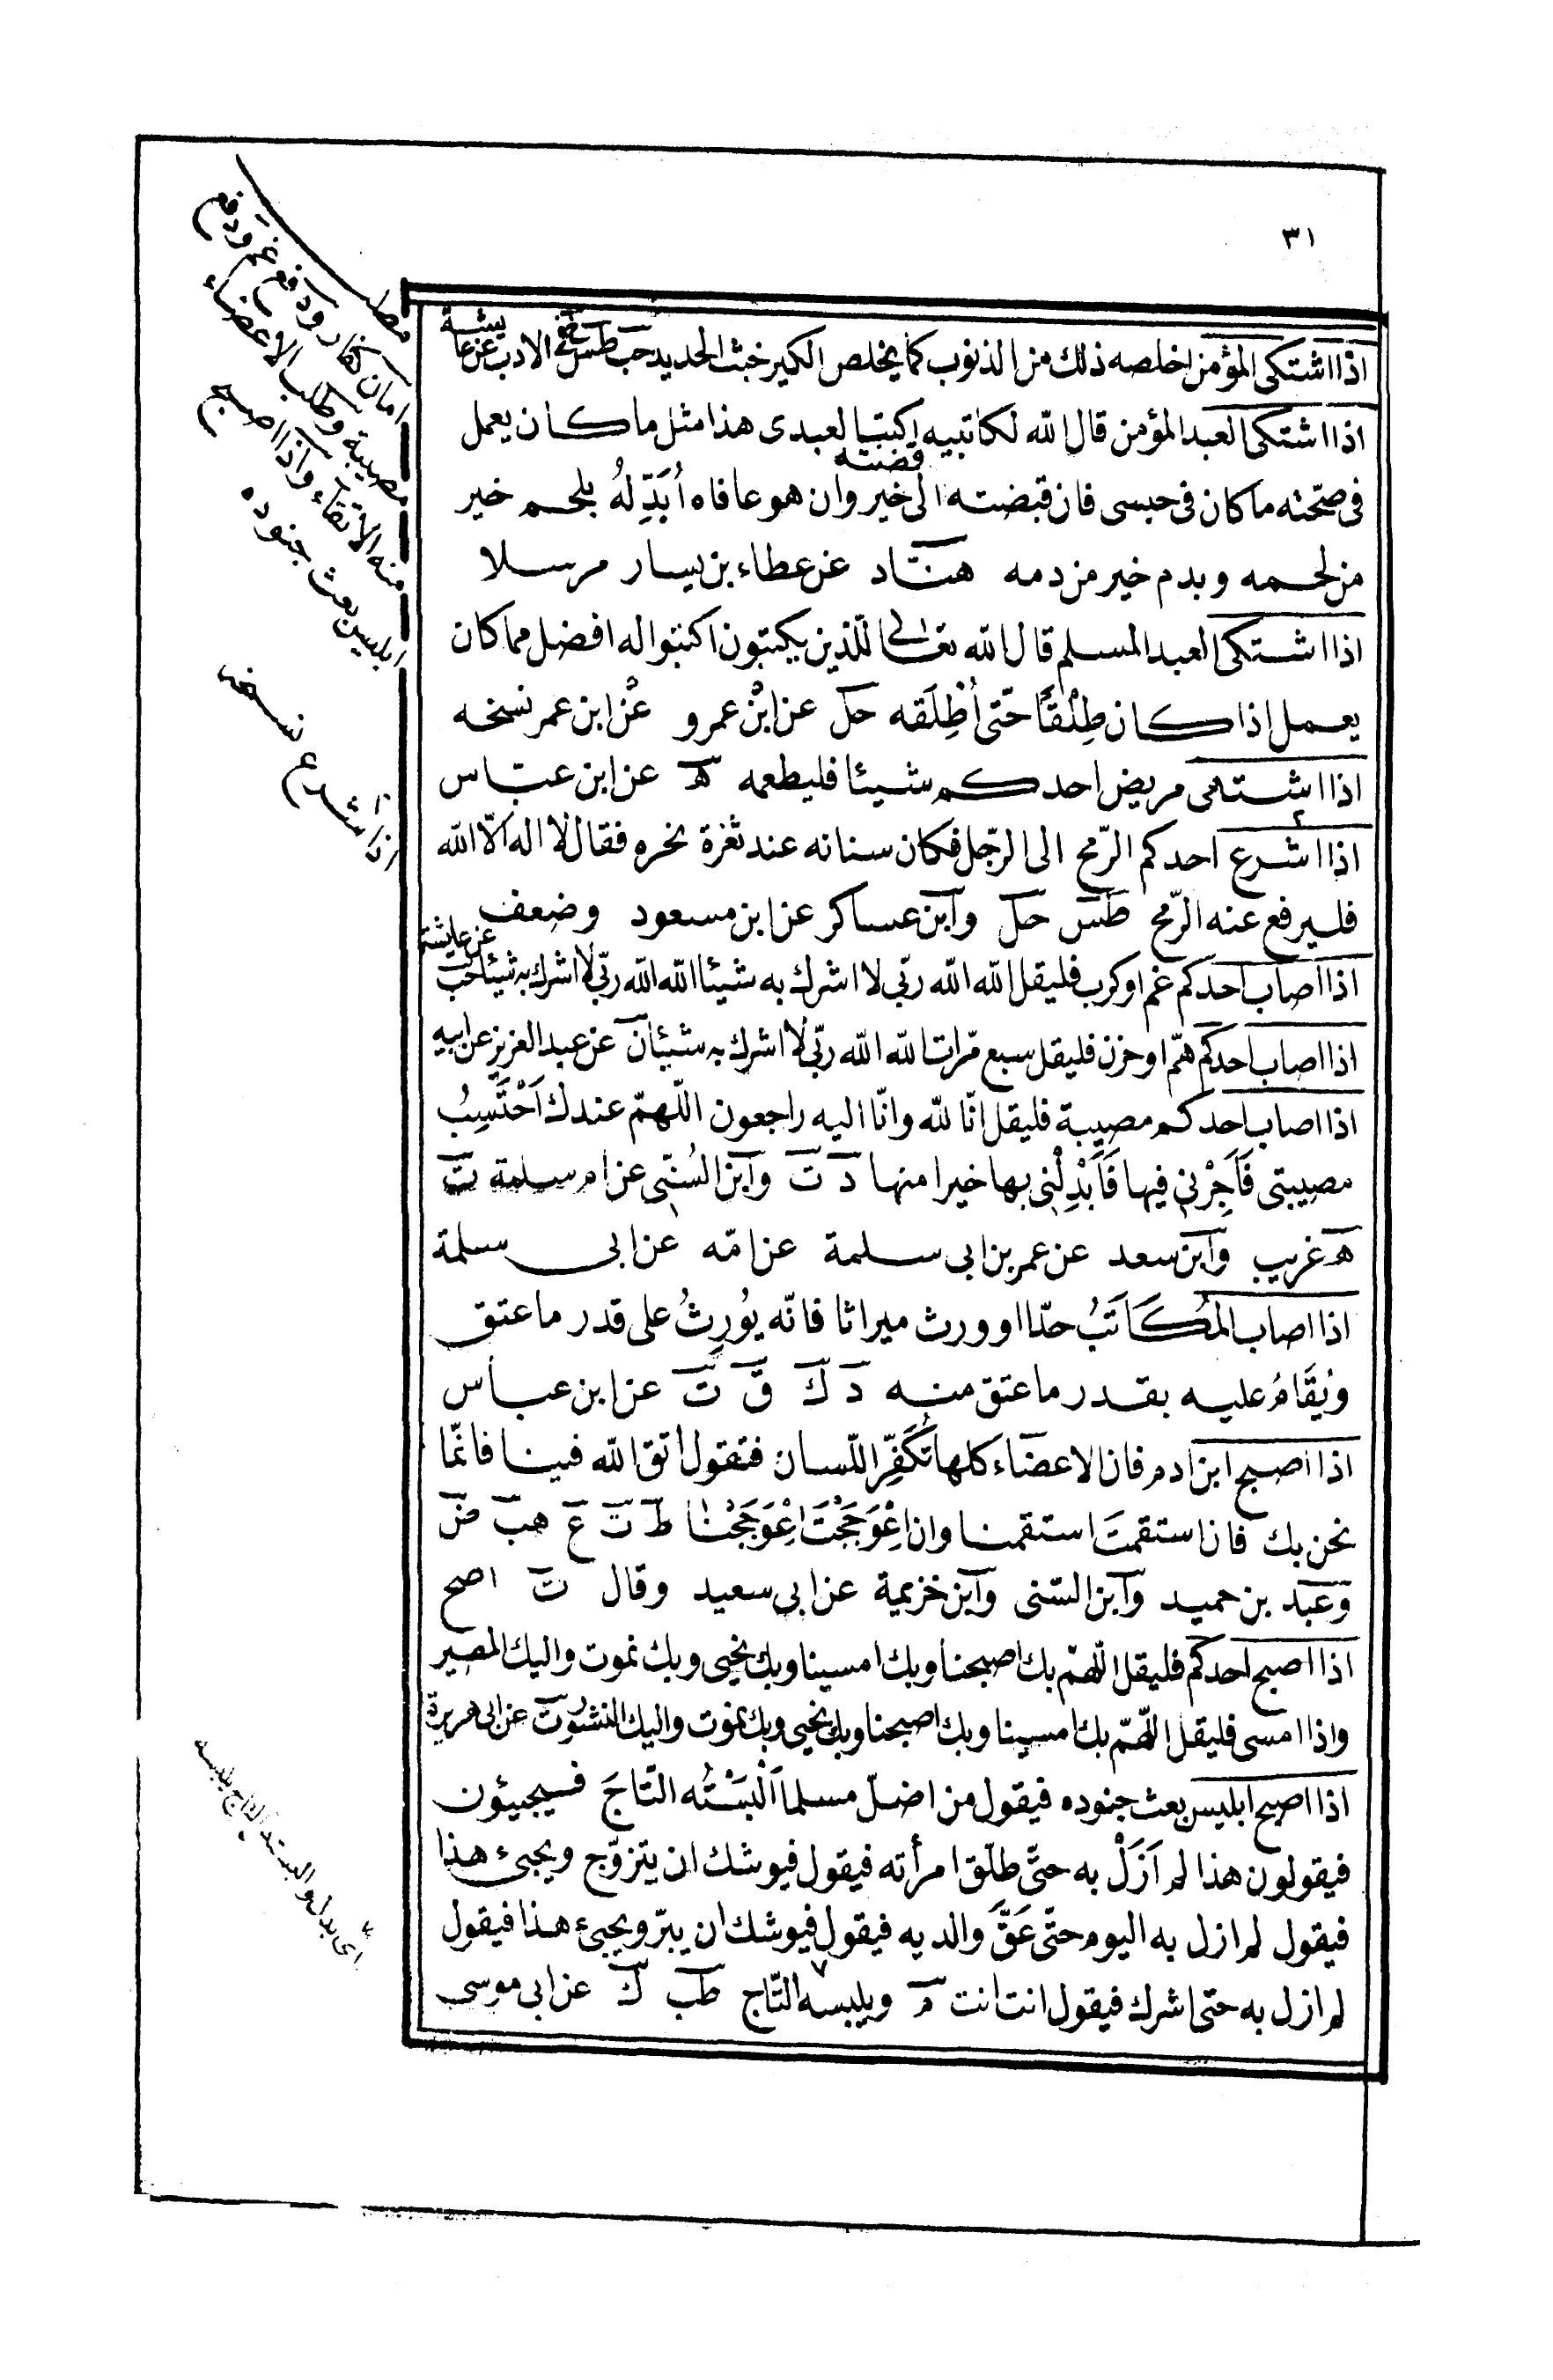 ٣١
اذا اشتكى المؤمن اخلصه ذلك من الذنوب كما يخلص الكير خبث الحديد حب طس خ في الادب عن عايشة
اذا اشتكى العبد المؤمن قال الله لكاتبيه اكتبا لعبدى هذا مثل ما كان يعمل
فى صحّته ما كان فى حبسى فان قبضته الى خير وان هو عافاه اُبَدِّلهُ بلحم خير
من لحمه وبدم خير من دمه هنّاد عن عطاء بن يسار مرسلا
اذا اشتكى العبد المسلم قال الله تعالى للّذين يكتبون اكتبوا له افضل مما كان
يعمل اذا كان طِلْقًا حتّى اُطْلِقَه حل عن ابن عمرو عن ابن عمر نسخه
اذا اشتهى مريض احدكم شيئا فليطعمه ه عن ابن عبّاس
اذا اشرع احدكم الرّمح الى الرّجل فكان سنانه عند ثغرة نحره فقال لا اله الّا الله
فليرفع عنه الرّمح طس حل وابن عساكر عن ابن مسعود وضعف
اذا اصاب احدكم غم او كرب فليقل الله الله ربّى لا اشرك به شيئا الله الله ربّى لا اشرك به شيئا حب عن عايشة
اذا اصاب احدكم همّ او حزن فليقل سبع مّرات الله الله ربّى لا اشرك به شيئا ن عن عبد العزيز عن ابيه
اذا اصاب احدكم مصيبة فليقل انّا لله وانّا اليه راجعون اللّهمّ عندك اَحْتَسِبُ
مصيبتى فَاَجِرْنى فيها فَاَبْدِلْنى بها خيرا منها د ت وابن السُنّى عن ام سلمة ت
ه غريب وابن سعد عن عمر بن ابى سلمة عن امّه عن ابى سلمة
اذا اصاب المُكَاتَبُ حدّا او ورث ميراثا فانّه يُورِثُ على قدر ما عتق
ويُقَامُ عليه بقدر ما عتق منه د ك ق ت عن ابن عباس
اذا اصبح ابن ادم فان الاعضاء كلها تُكَفِّر اللّسان فتقول اتق الله فينا فانّما
نحن بك فان استقمتَ استقمنا وان اعْوَجَجْتَ اِعْوَجَجْنا ط ت ع هب ض
وعبد بن حميد وابن السّنى وابن خزيمة عن ابى سعيد وقال ت اصح
اذا اصبح احدكم فليقل اللّهمّ بك اصبحنا وبك امسينا وبك نحيى وبك نموت واليك المصير
واذا امسى فليقل اللّهمّ بك امسينا وبك اصبحنا وبك نحيى وبك نموت واليك النشور ت عن ابى هريرة
اذا اصبح ابليس بعث جنوده فيقول من اضلّ مسلما اَلْبَسْتُه التّاجَ فسيجيئون
فيقولون هذا لم اَزَلْ به حتّى طلّق امرأته فيقول فيوشك ان يتزوّج ويجيئ هذا
فيقول لم ازل به اليوم حتّى عَقَّ والديه فيقول فيوشك ان يبرّ ويجيئ هذا فيقول
لم ازل به حتى اشرك فيقول انت انت م ويلبسه التّاج طب ك عن ابى موسى
قضته
مطلب
امان كفار ودفع غم ودفع
مصيبة وطلب الاعضاء
منه الاتقاء واذا اصبح
ابليس بعث جنوده
اذا شرع نسخه
اى بدل والبسته التاج يلبسه